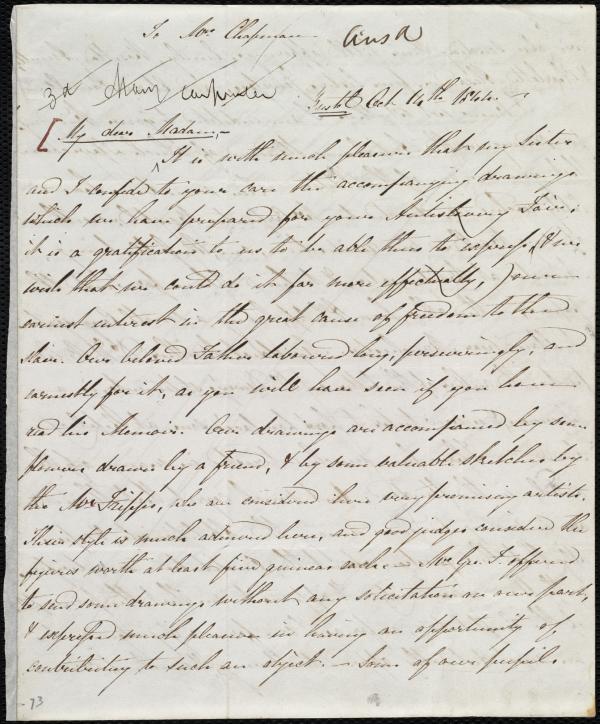 To Mrs Chapman Ans d
3d Mary Carpenter
Bristol. Oct. 14th
[My dear Madam,–
^ It is with much pleasure that my Sister
and I confide to your care the accompanying drawings
which we have prepared for your Antislavery Fair;
it is a gratification to us to be able thus to express, (& we
wish that we could do it far more effectually,) our
earnest interest in the great cause of freedom to the
slave. Our beloved Father laboured long, perseveringly, and
earnestly for it, as you will have seen if you have
read his Memoir. Our drawings are accompanied by some
flowers drawn by a friend, & by some valuable sketches by
the Mr Fripps, who are considered here very promising artists.
Their style is much admired here, and good judges consider the
figures worth at least five guineas each. – Mr Ge. F. offered
to send some drawings without any solicitation on our part,
& expressed much pleasure in having an opportunity of
contributing to such an object. – Some of our pupils
73